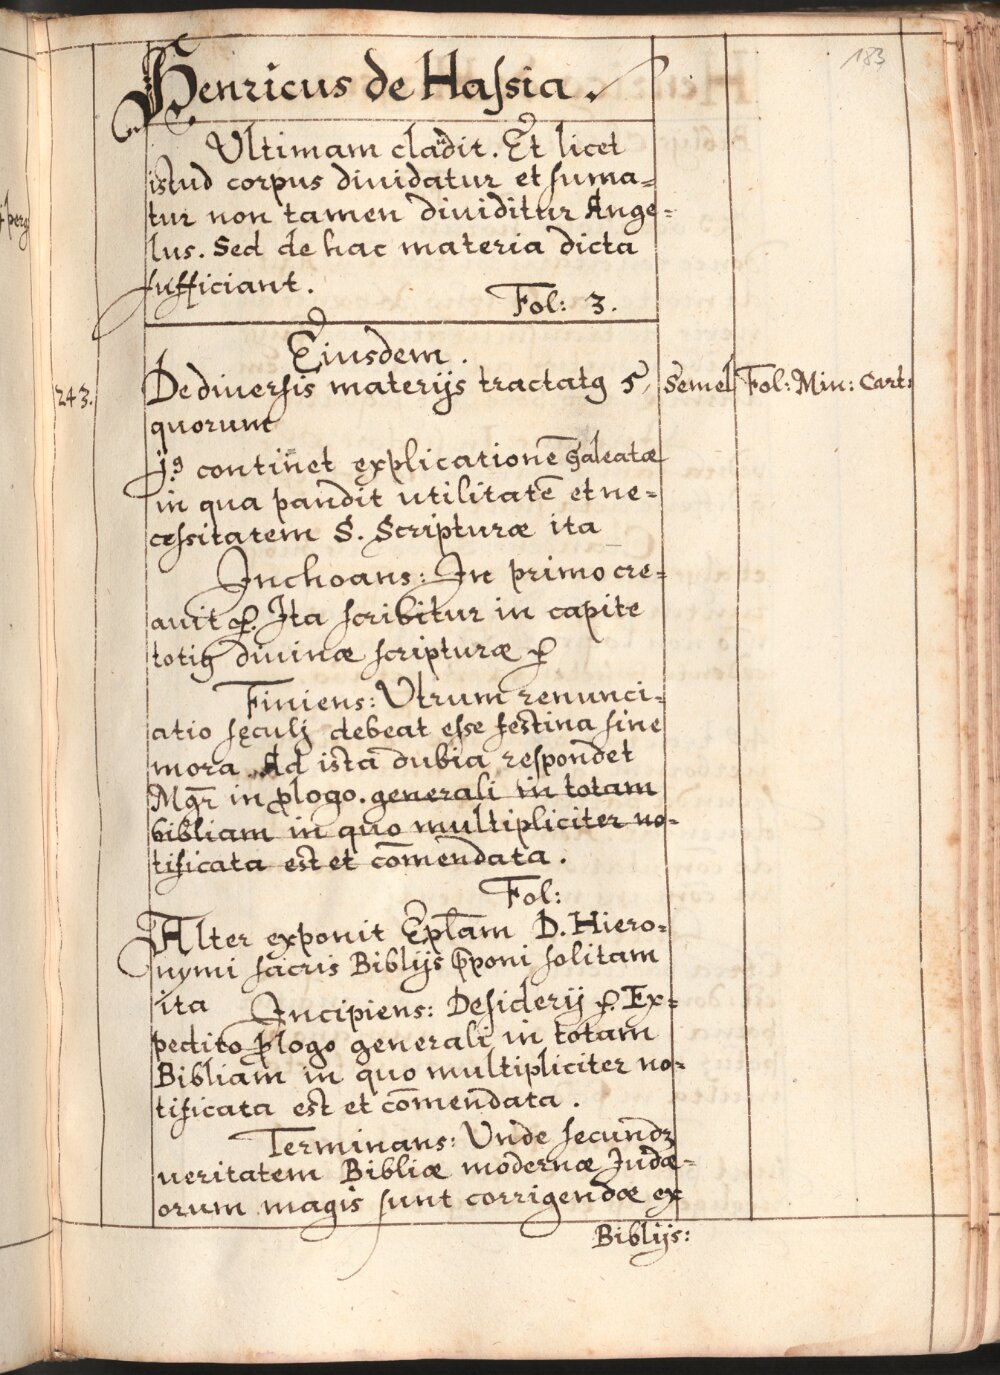 183
Henricus de Hassia.
Ultimam cladit. Et licet
istud corpus dividatur et suma=
tur non tamen dividitur Ange=
lus. Sed de hac materia dicta
sufficiant.
Fol: 3.
Eiusdem.
243. De diversis materijs tractatꝰ 5, Semel Fol: Min: Cart:
quorunt
jꝰ continet explicationē Galeatæ
in qua pandit utilitatē et ne=
cessitatem S. Scripturæ ita
Inchoans: In primo cre=
auit ꝛc. Ita scribitur in capite
totiꝰ diuinæ scripturæ ꝛc
Finiens: Utrum renunci=
atio sęculj debeat esse festina sine
mora. Ad ista dubia respondet
Mgr̄ in ꝓlogo. generali in totam
bibliam in quo multipliciter no=
tificata est et com̄endata.
Fol:
Alter exponit Epl̄am D. Hiero=
nymi sacris Biblijs p̄poni solitam
ita Incipiens: Desiderij ꝛc. Ex=
pedito ꝓlogo generali in totam
Bibliam in quo multipliciter no=
tificata est et com̄endata.
Terminans: Unde secundꝫ
ueritatem Bibliæ modernæ Judæ=
orum magis sunt corrigendæ ex
Biblijs: